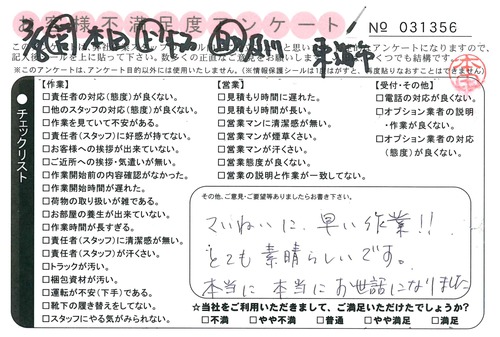 お客様不満足度アンケート
№ 031356
記入後シールを上に貼って下さい。数多くの正直なご意見をお願いします。
※このアンケートは、アンケート目的以外には使用いたしません。(※情報保護シールは1度はがすと、再度貼りなおすことはできません)
チェックリスト
【作業】
□責任者の対応(態度)が良くない。
□他のスタッフの対応(態度)が良くない。
□作業を見ていて不安がある。
□責任者(スタッフ)に好感が持てない。
□お客様への挨拶が出来ていない。
□ご近所への挨拶・気遣いが無い。
□作業開始前の内容確認がなかった。
□作業開始時間が遅れた。
□荷物の取り扱いが雑である。
□お部屋の養生が出来ていない。
□作業時間が長すぎる。
□責任者(スタッフ)に清潔感が無い。
□責任者(スタッフ)が汗くさい。
□トラックが汚い。
□梱包資材が汚い。
□運転が不安(下手)である。
□靴下の履き替えをしてない。
□スタッフにやる気がみられない。
【営業】
□見積もり時間に遅れた。
□見積もり時間が長い。
□営業マンに清潔感が無い。
□営業マンが煙草くさい。
□営業マンが汗くさい。
□営業態度が良くない。
□営業の説明と作業が一致してない。
【受付・その他】
□電話の対応が良くない。
□オプション業者の説明
・作業が良くない。
□オプション業者の対応
(態度)が良くない。
その他、ご意見・ご要望等ありましたらお書き下さい。
ていねいに、早い作業!!
とても素晴らしいです。
本当に 本当に お世話になりました
☆当社をご利用いただきまして、ご満足いただけたでしょうか?
□不満 □やや不満 □普通 □やや満足 □満足